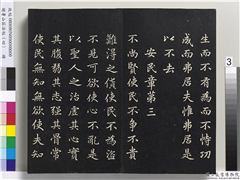 生而不有為而不恃功
成而弗居夫惟弗居是
以不去
安民章第三
不尚賢使民不爭不貴
難得之貨使民不為盜
不見可欲使心不亂是
以聖人之治虛其心實
其腹弱其志強其骨常
使民無知無欲使夫知
3